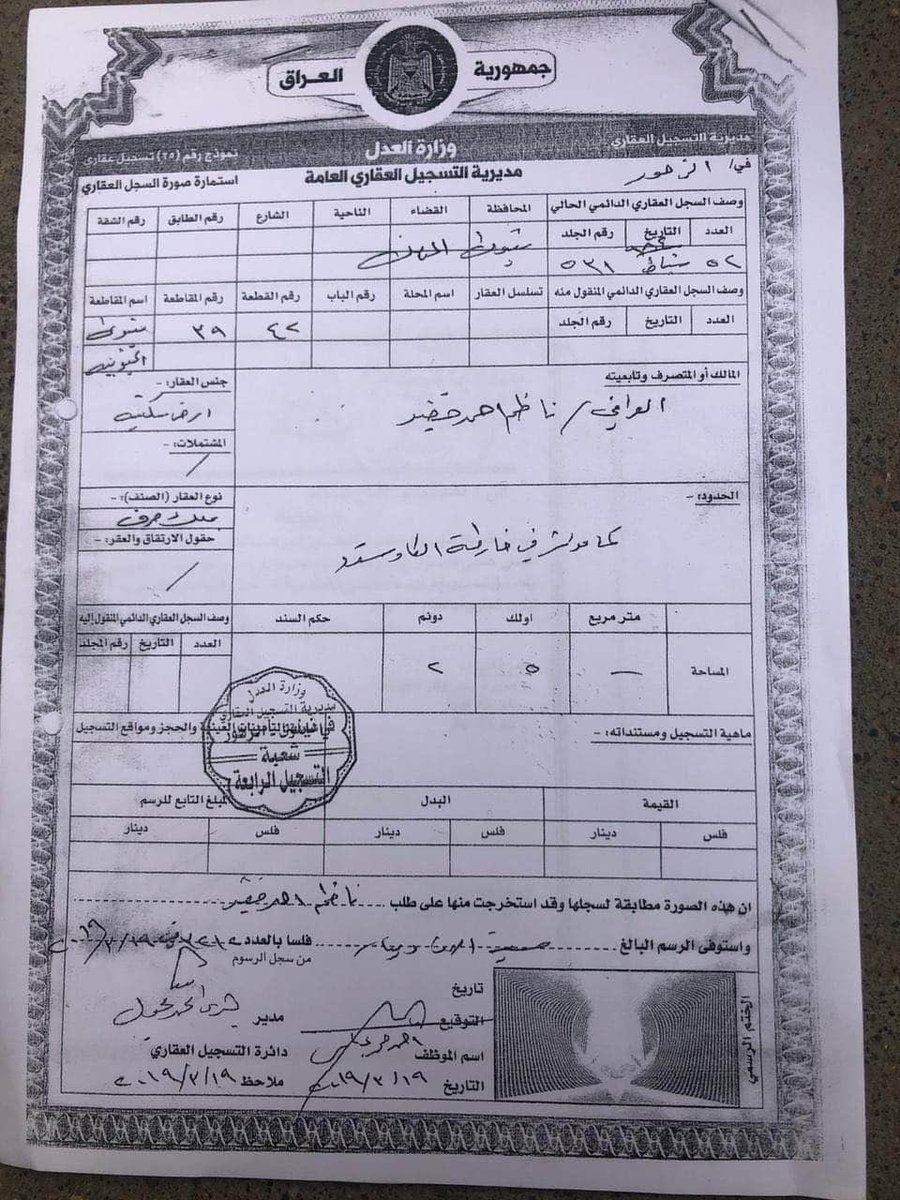 جمهورية العراق
مديرية التسجيل العقاري
وزارة العدل
نموذج رقم (٢٥) تسجيل عقاري
في/ الزهور
مديرية التسجيل العقاري العامة
استمارة صورة السجل العقاري
وصف السجل العقاري الدائمي الحالي
المحافظة القضاء الناحية الشارع رقم الطابق رقم الشقة
العدد التاريخ رقم الجلد
٥٢ شباط ٥٣١
وصف السجل العقاري الدائمي المنقول منه
تسلسل العقار اسم المحلة رقم الباب رقم القطعة رقم المقاطعة اسم المقاطعة
العدد التاريخ رقم الجلد
٤٢ ٣٩
المالك أو المتصرف وتابعيته
العراقي / ناظم احمد خضير
جنس العقار: -
ارض سكنية
المشتملات: -
/
الحدود: -
نوع العقار (الصنف): -
ملك صرف
في خارطة الكادسترو
حقول الارتفاق والعقر: -
/
متر مربع اولك دونم حكم السند وصف السجل العقاري الدائمي المنقول إليه
العدد التاريخ رقم المجلد
المساحة — ٥ ٢
وزارة العدل
مديرية التسجيل العقاري
شعبة
التسجيل الرابعة
ماهية التسجيل ومستنداته: -
التأمينات العينية والحجز ومواقع التسجيل
القيمة البدل المبلغ التابع للرسم
فلس دينار فلس دينار فلس دينار
ان هذه الصورة مطابقة لسجلها وقد استخرجت منها على طلب ناظم احمد خضير
واستوفى الرسم البالغ فلسا بالعدد ٢٠١٩/٣/١٩
من سجل الرسوم
تاريخ
التوقيع
مدير
اسم الموظف
دائرة التسجيل العقاري
التاريخ ٢٠١٩/٣/١٩
ملاحظ ٢٠١٩/٣/١٩
الختم الرسمي